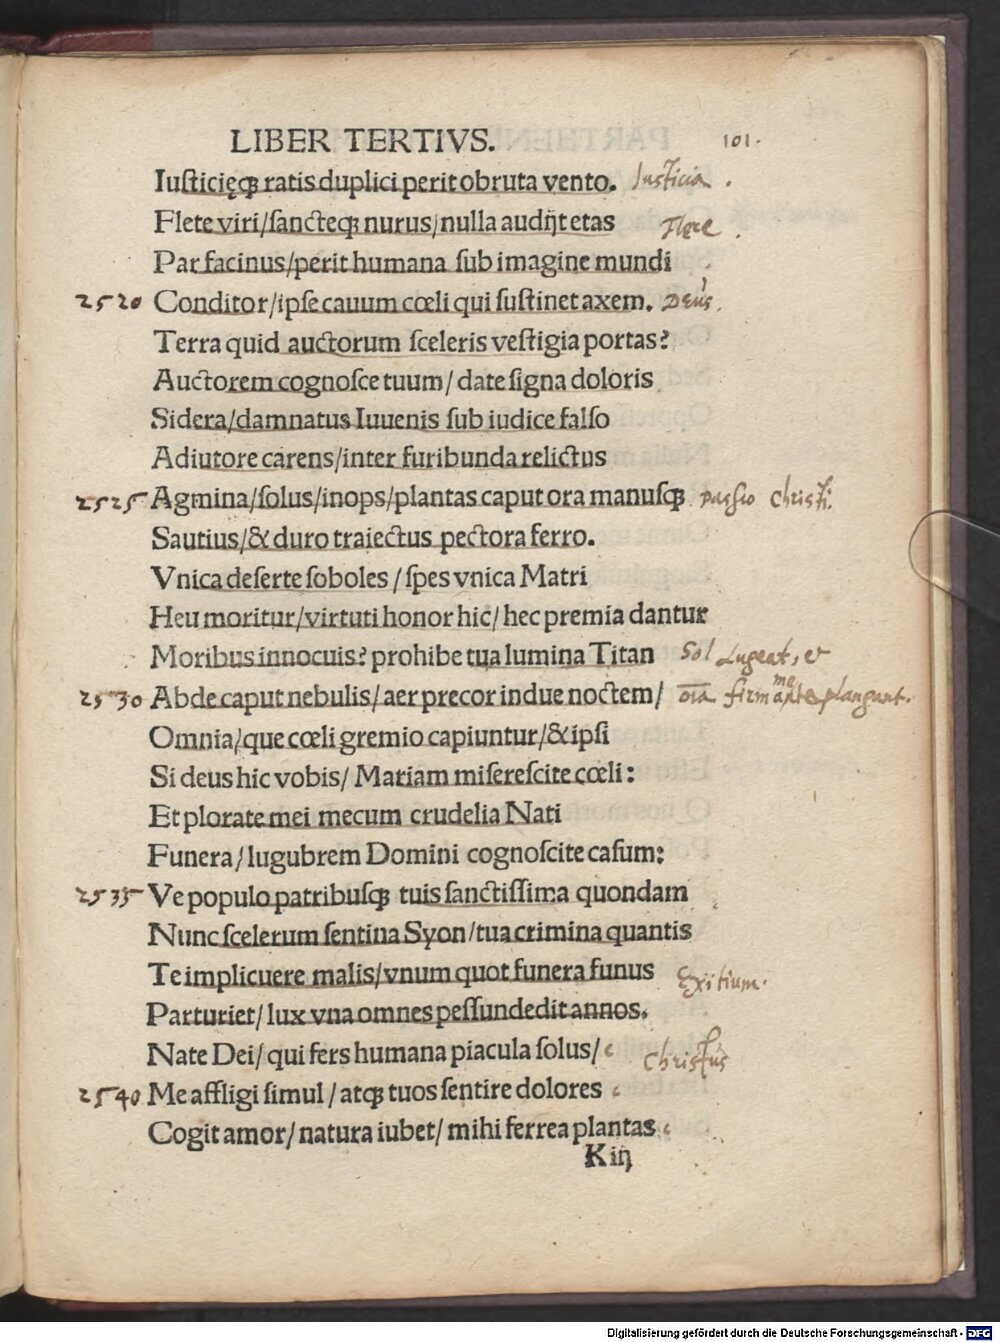 LIBER TERTIVS. 101.
Iuſticięqꝫ ratis duplici perit obruta vento. Iusticia.
Flete viri/ſancteqꝫ nurus/nulla audijt etas Flere.
Par facinus/perit humana ſub imagine mundi
2520 Conditor/ipſe cauum cœli qui ſuſtinet axem. Deus.
Terra quid auctorum ſceleris veſtigia portas?
Auctorem cognoſce tuum/ date ſigna doloris
Sidera/damnatus Iuuenis ſub iudice falſo
Adiutore carens/inter furibunda relictus
2525 Agmina/ſolus/inops/plantas caput ora manuſqꝫ passio Christi.
Sautius/& duro traiectus pectora ferro.
Vnica deſerte ſoboles/ ſpes vnica Matri
Heu moritur/virtuti honor hic/ hec premia dantur
Moribus innocuis? prohibe tua lumina Titan Sol Lugeat, et
2530 Abde caput nebulis/aer precor indue noctem/ oīa plangant.
Omnia/que cœli gremio capiuntur/& ipſi
Si deus hic vobis/ Mariam miſereſcite cœli:
Et plorate mei mecum crudelia Nati
Funera/lugubrem Domini cognoſcite caſum:
2535 Ve populo patribuſqꝫ tuis ſanctiſſima quondam
Nunc ſcelerum ſentina Syon/tua crimina quantis
Te implicuere malis/vnum quot funera funus Exitium.
Parturiet/lux vna omnes peſſundedit annos.
Nate Dei/ qui fers humana piacula ſolus/ Christus
2540 Me affligi ſimul/ atqꝫ tuos ſentire dolores
Cogit amor/ natura iubet/ mihi ferrea plantas
K iij
Digitalisierung gefördert durch die Deutsche Forschungsgemeinschaft - DFG